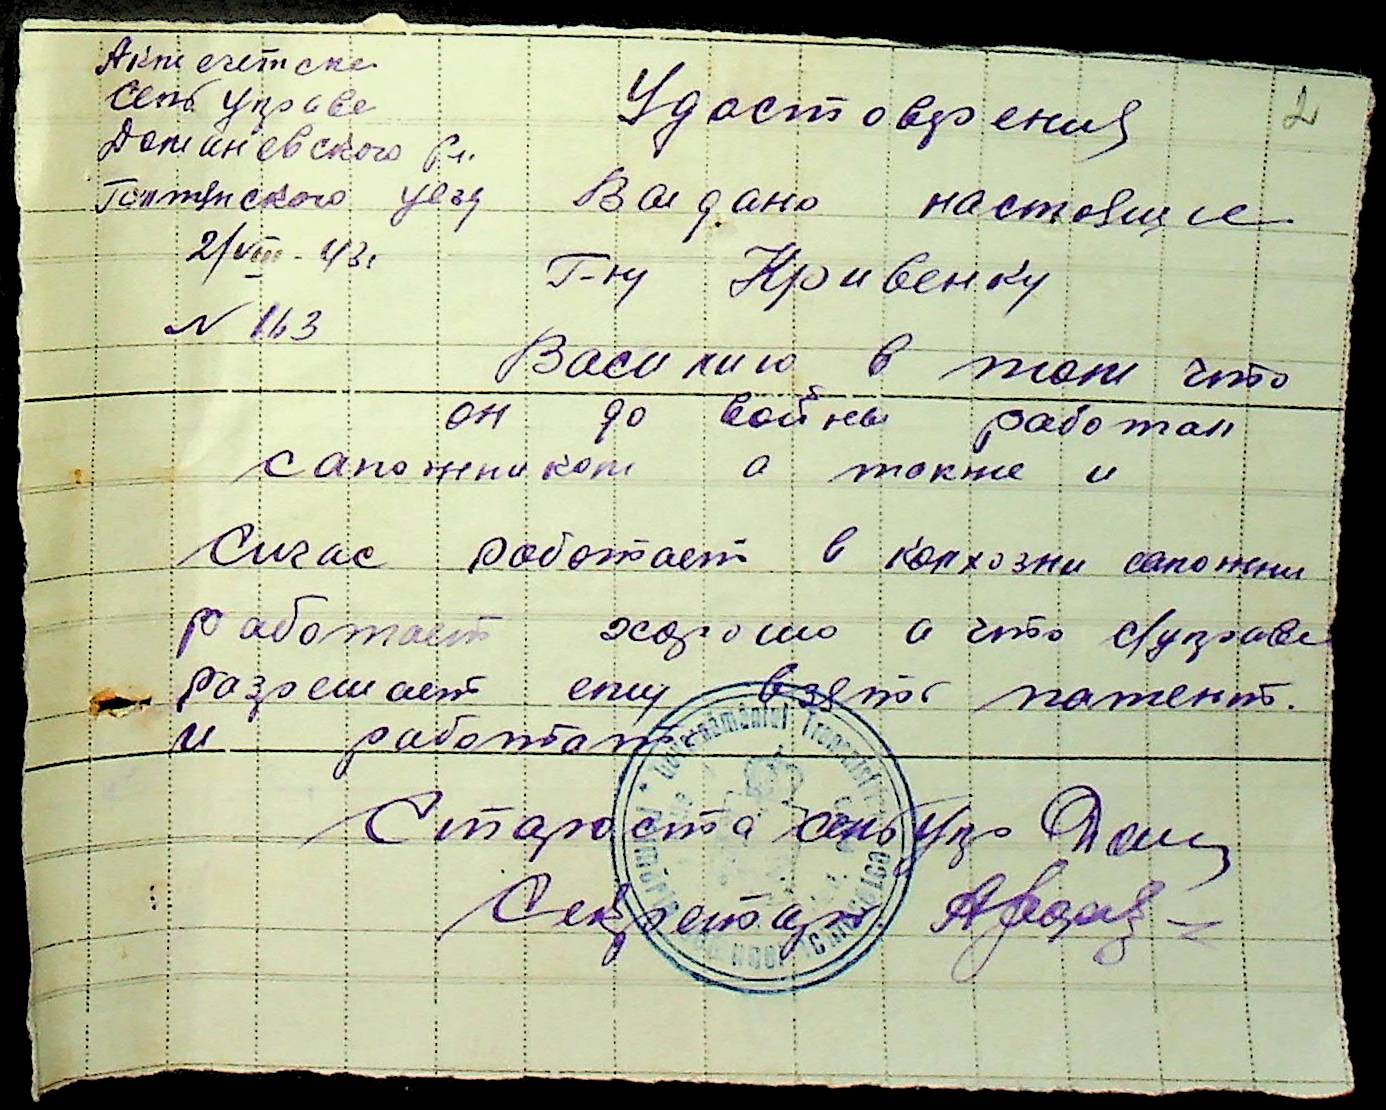 Акмечетске
Сельуправе
Доманевского р.
Голтянского уезд
2/VIII - 43г
N 163
2
Удостоверения
Выдано настоящие
Г-ну Кривенку
Василию в том что
он до войны работал
сапожником а также и
Сичас работает в колхозни сапожни
работает хорошо а что с/управе
разрешает ему взять патент.
и работать
Староста сельупр
Секретарь
Guvernământul Transnistriei
România